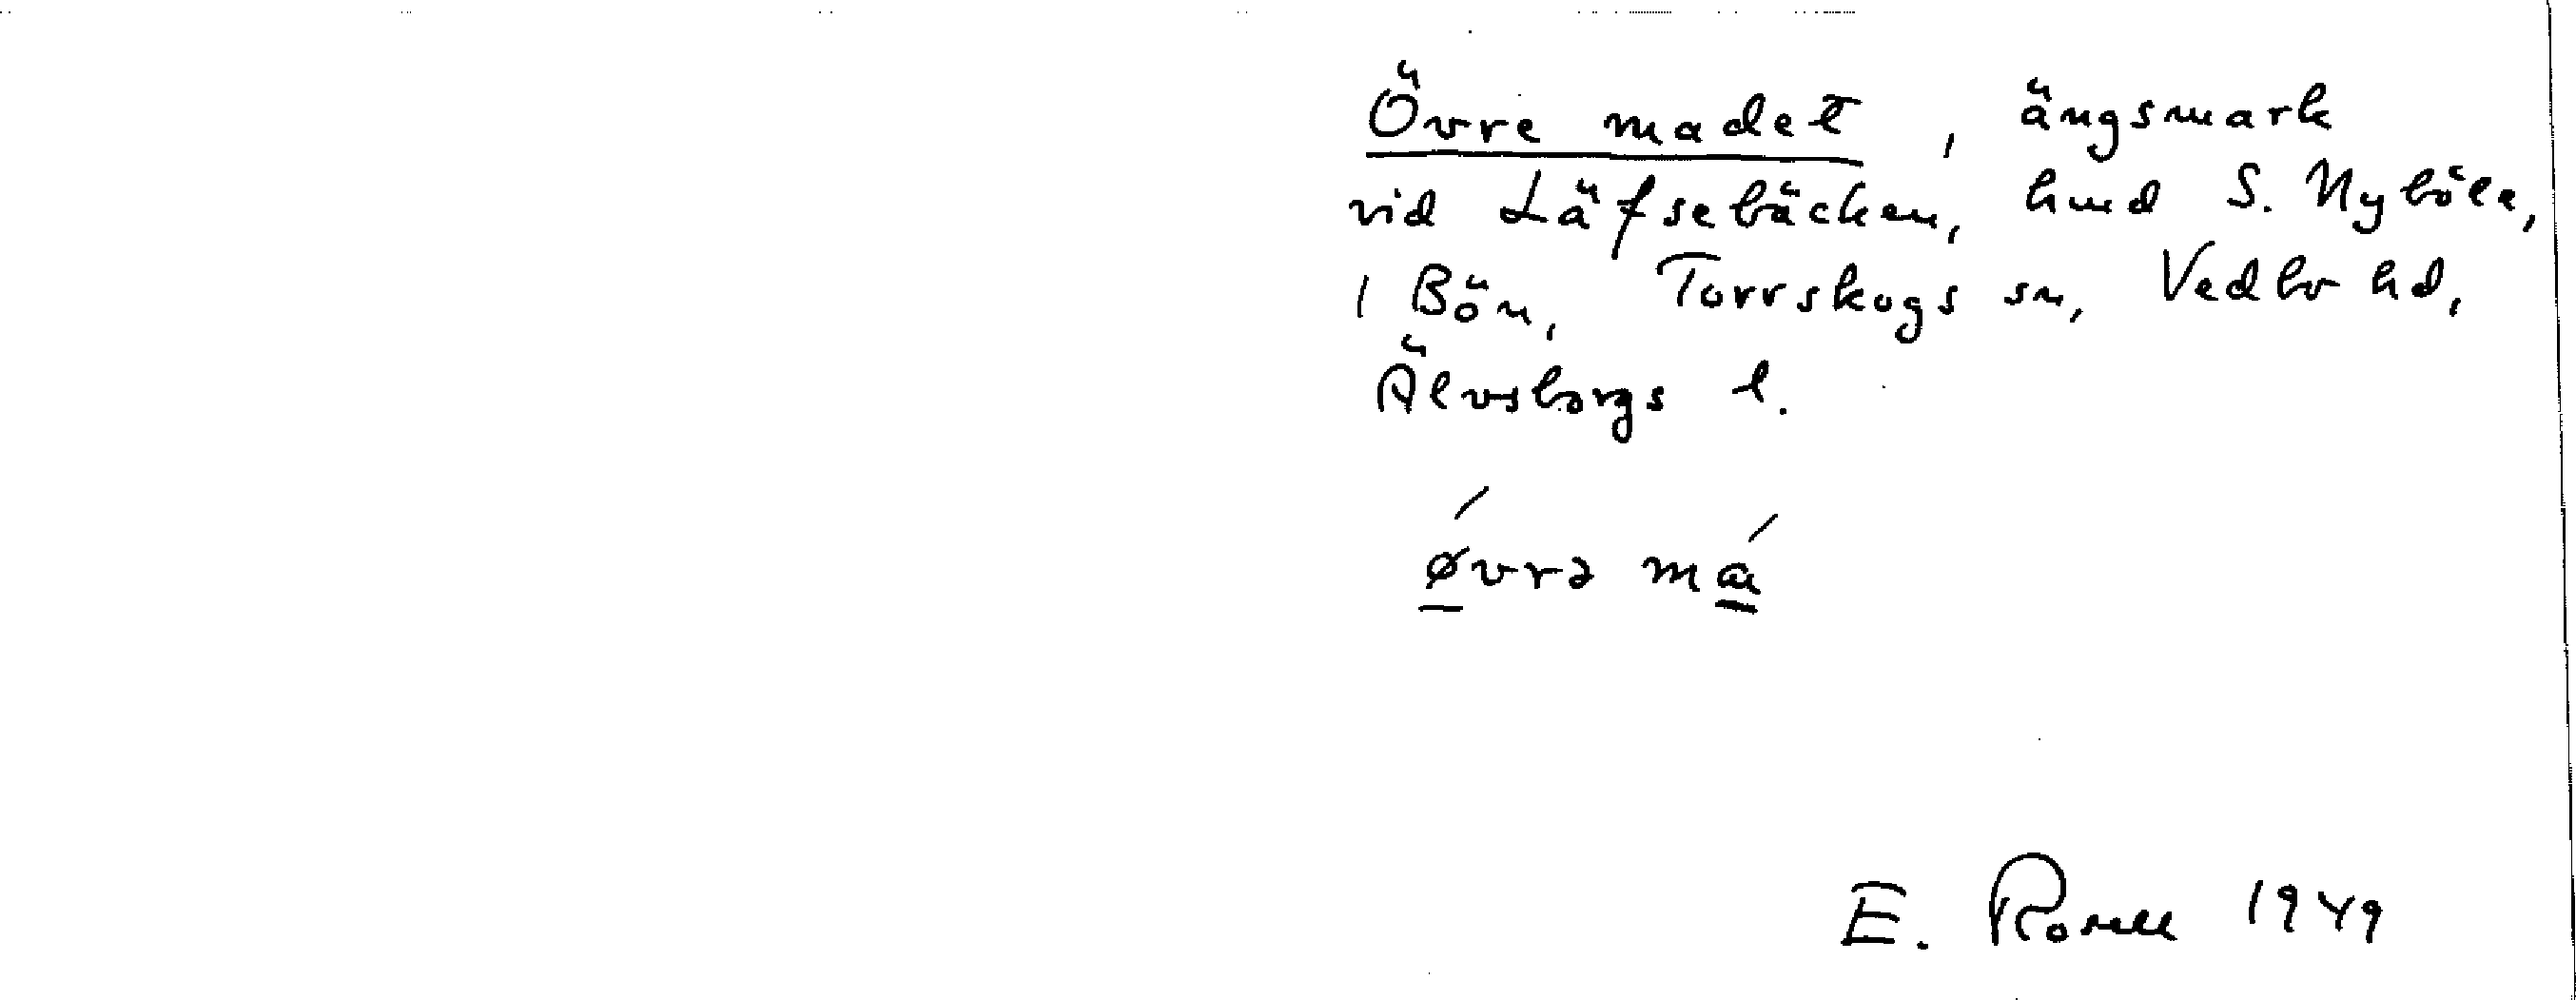 Övre madet, ängsmark
vid Läfsebäcken, hmd S. Nyböle,
1 Bön, Torrskogs sn, Vedbo hd,
Älvsborgs l.
øvrə ma
E. 1949